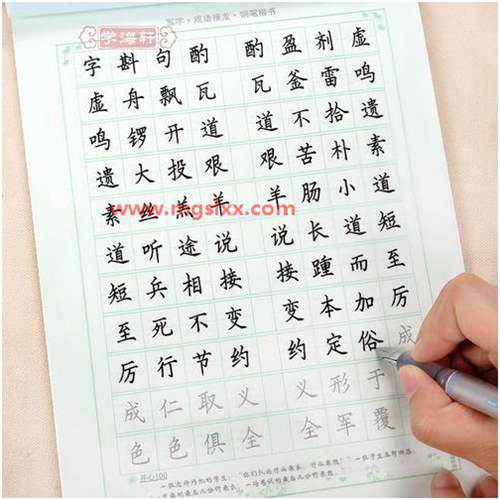 写字·成语接龙·钢笔楷书
学海轩
字斟句酌 酌盈剂虚
虚舟飘瓦 瓦釜雷鸣
鸣锣开道 道不拾遗
遗大投艰 艰苦朴素
素丝羔羊 羊肠小道
www.mgsfxx.com
道听途说 说长道短
短兵相接 接踵而至
至死不变 变本加厉
厉行节约 约定俗成
成仁取义 义形于
色色俱全 全军覆
开心100